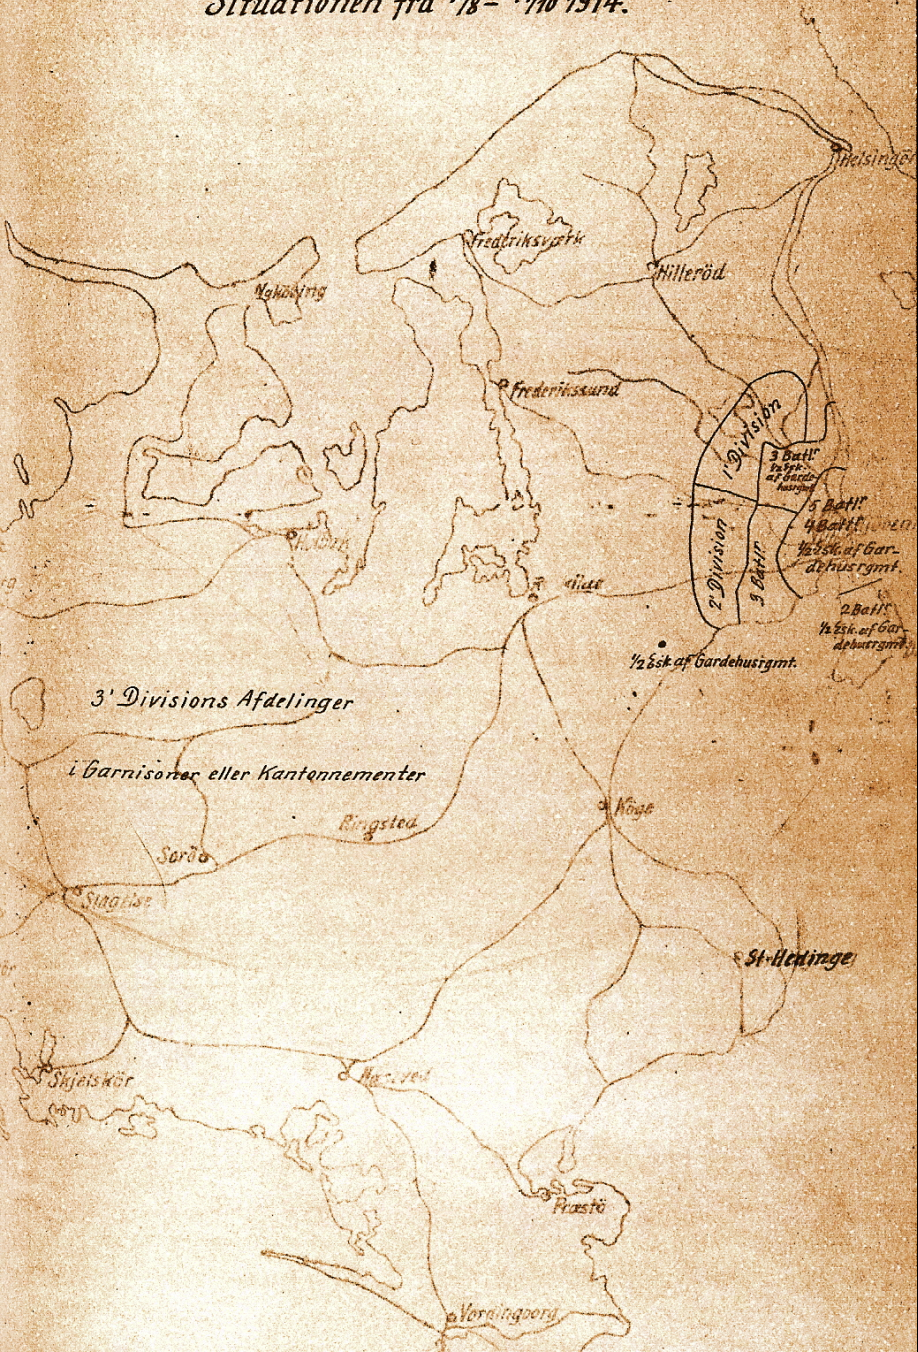 Situationen fra 1/8 – 1/10 1914.
Helsingör
Frederiksværk
Hilleröd
Nyköbing
Frederikssund
1' Division
3 Batlr
1/2 Esk.
af Garde-
husrgmt
5 Batlr
4 Batlr
1/2 Esk. af Gar-
dehusrgmt.
2' Division
3 Batlr
2 Batlr
1/2 Esk. af Gar-
dehusrgmt
1/2 Esk af Gardehusrgmt.
3' Divisions Afdelinger
i Garnisoner eller Kantonnementer
Köge
Ringsted
Sorö
Slagelse
St-Hedinge
Skjelskör
Næstved
Præstö
Vordingborg